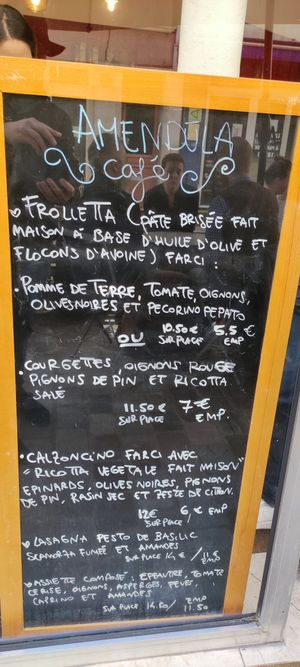 AMENDOLA
Café
FROLLETTA (PÂTE BRISÉE FAIT
MAISON À BASE D'HUILE D'OLIVE ET
FLOCONS D'AVOINE) FARCI :
• POMME DE TERRE, TOMATE, OIGNONS,
OLIVES NOIRES ET PECORINO PEPATO
10.50€ SUR PLACE OU 5.5 € EMP
• COURGETTES, OIGNONS ROUGE
PIGNONS DE PIN ET RICOTTA
SALÉ
11.50 € SUR PLACE 7€ EMP.
• CALZONCINO FARCI AVEC
"RICOTTA VEGETALE FAIT MAISON"
EPINARDS, OLIVES NOIRES, PIGNONS
DE PIN, RASIN SEC ET ZESTE DE CITRON.
12€ SUR PLACE 6 € EMP
LASAGNA PESTO DE BASILIC
SCAMORZA FUMÉE ET AMANDES
SUR PLACE 14 € / 11.5 EMP
ASSIETTE COMPOSÉ : EPEAUTRE, TOMATE
CERISE, OIGNONS, ASPERGES, FEVES,
CAPRINO ET AMANDES
SUR PLACE 14.50 / EMP 11.50